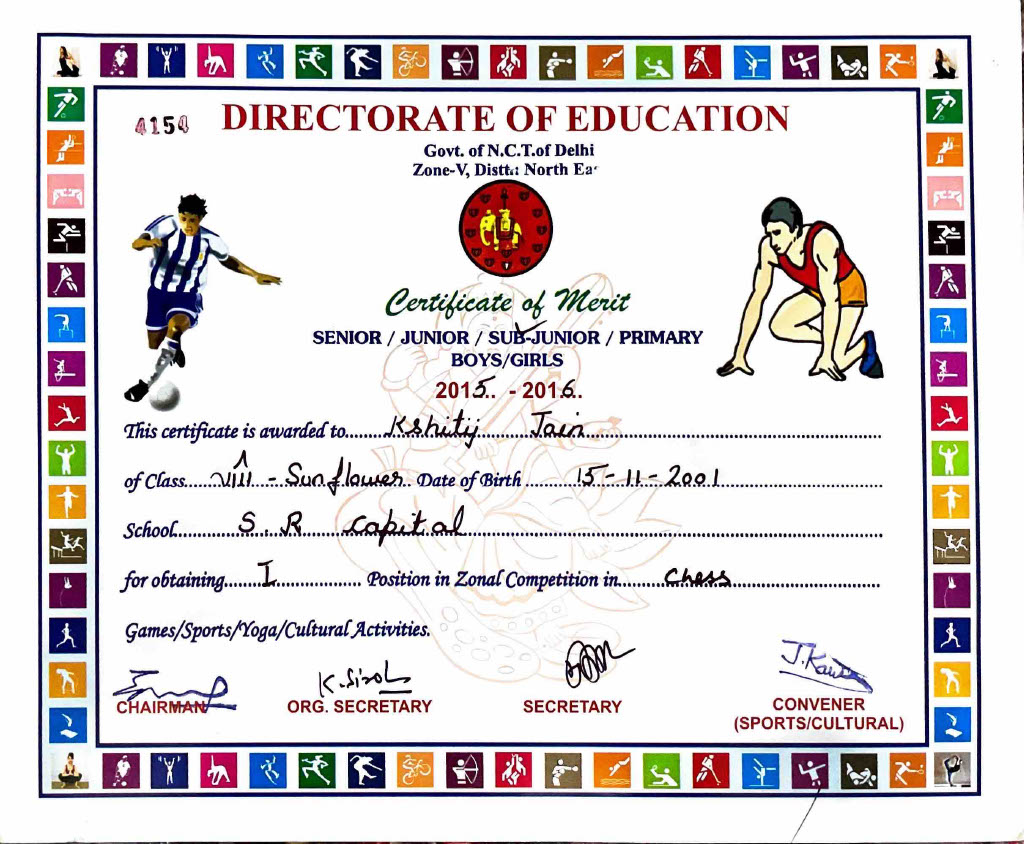 4154
DIRECTORATE OF EDUCATION
Govt. of N.C.T.of Delhi
Zone-V, Distt.: North Ea
Certificate of Merit
SENIOR / JUNIOR / SUB-JUNIOR / PRIMARY
BOYS/GIRLS
2015.. - 2016..
This certificate is awarded to.....Kshitij Jain
of Class.....VIII - Sunflower. Date of Birth.....15-11-2001
School.....S.R capital
for obtaining.....I..... Position in Zonal Competition in.....Chess
Games/Sports/Yoga/Cultural Activities.
K.Siroh J.Kaur
CHAIRMAN ORG. SECRETARY SECRETARY CONVENER
(SPORTS/CULTURAL)